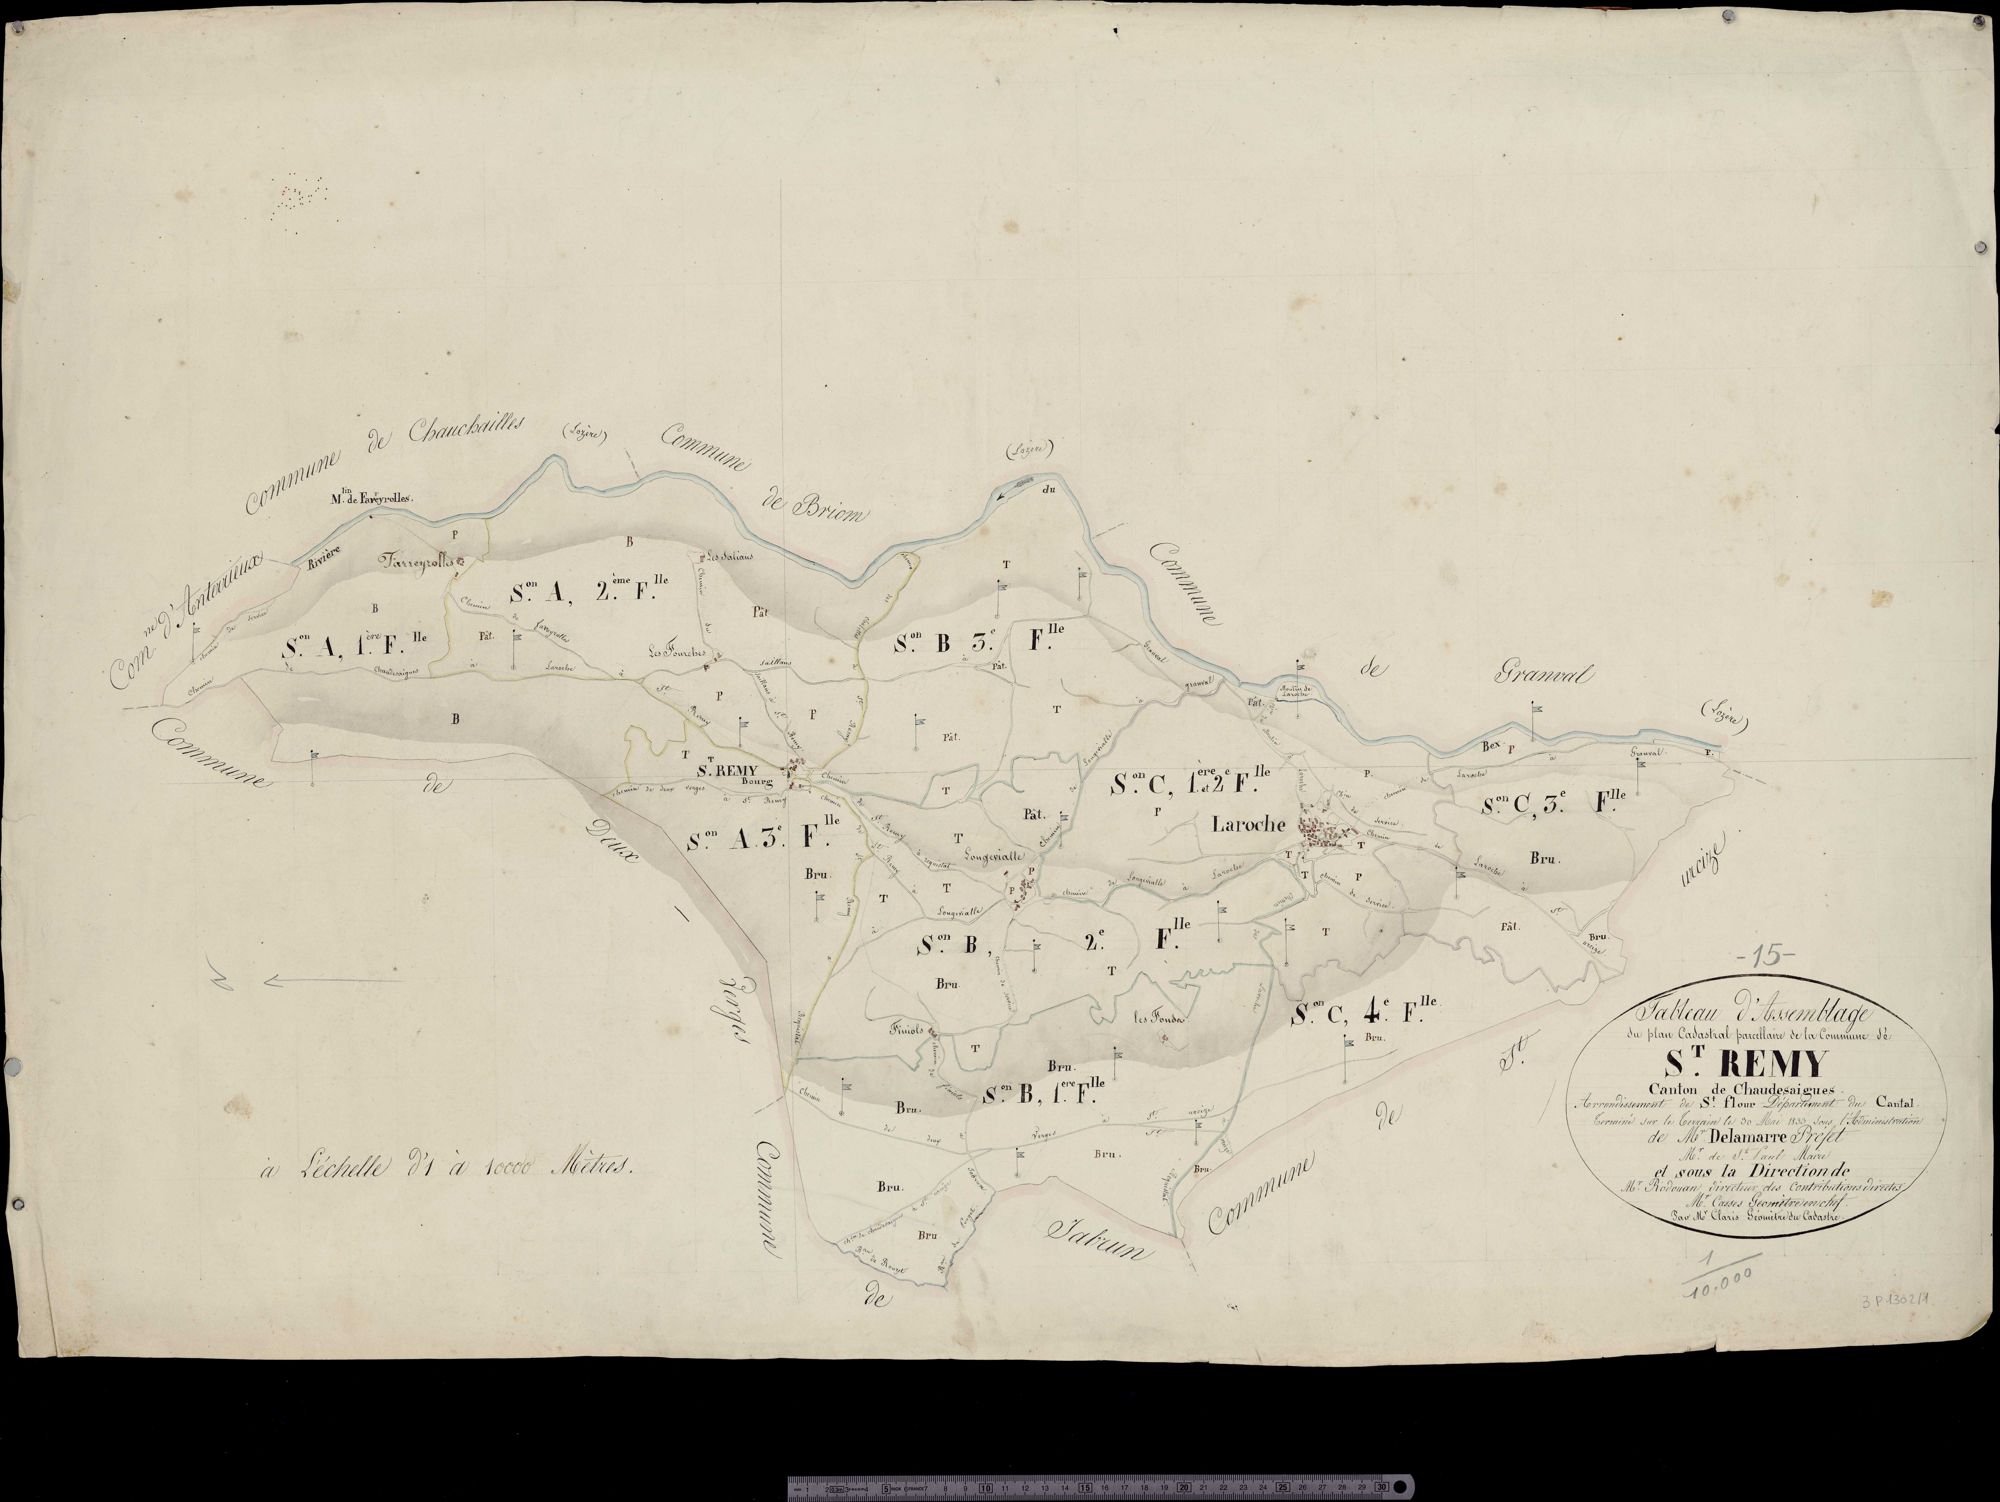 Commune de Chauchailles
(Lozère)
Commune
de Briom
(Lozère)
du
M.lin de Fareyrolles.
Rivière
Com.ne d'Anterrieux
Farreyrolles
P
B
Les Salians
S.on A, 2.ème F.lle
B
Pât.
Pât
S.on A, 1.ère F.lle
Les Fourches
S.on B 3.e F.lle
T
Pât.
Commune
de
Granval
(Lozère)
Chemin de Chaudesaigues à Laroche
Chemin de Fareyrolles à St. Remy
Chemin du
Saillans
B
P
P
T
Pât.
T
Pât.
Moulin de Laroche
Bex
P
Granval
P.
Commune
de
Deux
Verges
S.T REMY
Bourg
Chemin de deux verges à St. Remy
T
Pât.
S.on C, 1.ère et 2.e F.lle
P
P.
S.on C, 3.e F.lle
S.on A. 3.e F.lle
Bru.
Laroche
Bru.
T
Longevialle
P
P
T
T
Longevialle
Chemin de Longevialle à Laroche
T
T
T
P
chemin de service
Chemin de Laroche à St.
urcize
S.on B, 2.e F.lle
T
T
Pât.
Bru.
urcize
Bru
Finiols
les Fonds
T
S.on C, 4.e F.lle
Bru.
Bru.
S.on B, 1.ere F.lle
Bru.
Chemin de deux verges à St. urcize
Bru.
Bru.
Bru.
Bru
Commune
de
Jabrun
Commune
de
St.
urcize.
à L'échelle d'1 à 10000 Mètres.
-15-
Tableau d'Assemblage
du plan Cadastral parcellaire de la Commune de
S.T REMY
Canton de Chaudesaigues.
Arrondissement de St. flour Département du Cantal.
Terminé sur le Terrain le 30 Mai 1833 sous l'Administration
de Mr. Delamarre Préfet
Mr. de St. Paul Maire
et sous la Direction de
Mr. Rodouan directeur des Contributions directes
Mr. Cases Géomètre en chef.
Par Mr. Claris Géomètre du Cadastre
1
10.000
3 P 1302/1